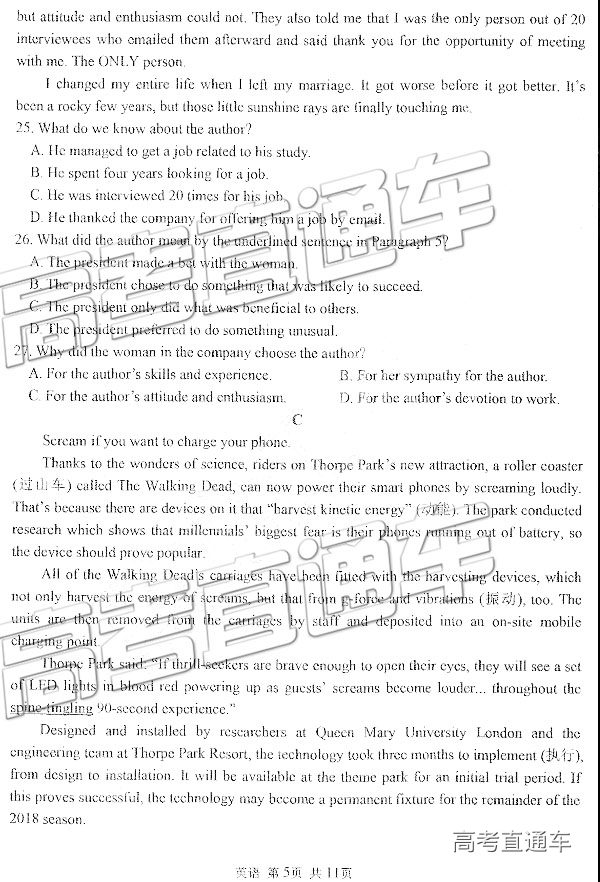 but attitude and enthusiasm could not. They also told me that I was the only person out of 20
interviewees who emailed them afterward and said thank you for the opportunity of meeting
with me. The ONLY person.
I changed my entire life when I left my marriage. It got worse before it got better. It's
been a rocky few years, but those little sunshine rays are finally touching me.
25. What do we know about the author?
A. He managed to get a job related to his study.
B. He spent four years looking for a job.
C. He was interviewed 20 times for his job.
D. He thanked the company for offering him a job by email.
26. What did the author mean by the underlined sentence in Paragraph 5?
A. The president made a bet with the woman.
B. The president chose to do something that was likely to succeed.
C. The president only did what was beneficial to others.
D. The president preferred to do something unusual.
27. Why did the woman in the company choose the author?
A. For the author's skills and experience. B. For her sympathy for the author.
C. For the author's attitude and enthusiasm. D. For the author's devotion to work.
C
Scream if you want to charge your phone.
Thanks to the wonders of science, riders on Thorpe Park's new attraction, a roller coaster
(过山车) called The Walking Dead, can now power their smart phones by screaming loudly.
That's because there are devices on it that "harvest kinetic energy" (动能). The park conducted
research which shows that millennials' biggest fear is their phones running out of battery, so
the device should prove popular.
All of the Walking Dead's carriages have been fitted with the harvesting devices, which
not only harvest the energy of screams, but that from g-force and vibrations (振动), too. The
units are then removed from the carriages by staff and deposited into an on-site mobile
charging point.
Thorpe Park said: "If thrill-seekers are brave enough to open their eyes, they will see a set
of LED lights in blood red powering up as guests' screams become louder... throughout the
spine-tingling 90-second experience."
Designed and installed by researchers at Queen Mary University London and the
engineering team at Thorpe Park Resort, the technology took three months to implement (执行),
from design to installation. It will be available at the theme park for an initial trial period. If
this proves successful, the technology may become a permanent fixture for the remainder of the
2018 season.
高考直通车
高考直通车
高考直通车
英语 第5页 共11页